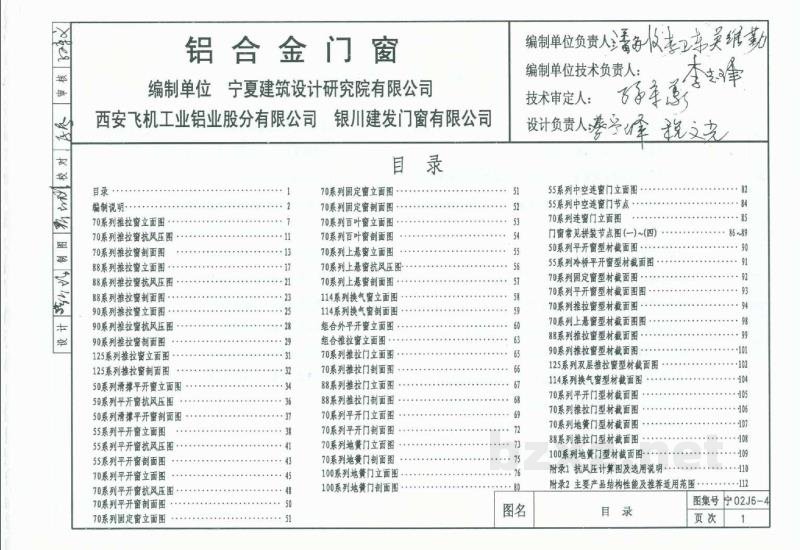 铝合金门窗
编制单位 宁夏建筑设计研究院有限公司
西安飞机工业铝业股分有限公司 银川建发门窗有限公司
编制单位负责人
编制单位技术负责人:
技术审定人:
设计负责人:
审核
校对
制图
设计
目录
目录 1
编制说明 2
70系列推拉窗立面图 7
70系列推拉窗抗风压图 11
70系列推拉窗剖面图 13
88系列推拉窗立面图 17
88系列推拉窗抗风压图 21
88系列推拉窗剖面图 23
90系列推拉窗立面图 25
90系列推拉窗抗风压图 28
90系列推拉窗剖面图 29
125系列推拉窗立面图 31
125系列推拉窗剖面图 32
50系列滑撑平开窗立面图 34
50系列平开窗抗风压图 36
50系列滑撑平开窗剖面图 37
55系列平开窗立面图 38
55系列平开窗抗风压图 41
55系列平开窗剖面图 43
70系列平开窗立面图 45
70系列平开窗抗风压图 48
70系列平开窗剖面图 50
70系列固定窗立面图 51
70系列固定窗立面图 51
70系列固定窗剖面图 52
70系列百叶窗立面图 53
70系列百叶窗剖面图 54
70系列上悬窗立面图 55
70系列上悬窗抗风压图 56
70系列上悬窗剖面图 57
114系列换气窗立面图 58
114系列换气窗剖面图 59
组合外平开窗立面图 60
组合推拉窗立面图 63
70系列推拉门立面图 65
70系列推拉门剖面图 66
88系列推拉门立面图 67
88系列推拉门剖面图 68
70系列平开门立面图 69
70系列平开门剖面图 72
70系列地簧门立面图 73
70系列地簧门剖面图 75
100系列地簧门立面图 76
100系列地簧门剖面图 80
55系列中空连窗门立面图 82
55系列中空连窗门节点 84
70系列连窗门立面图 85
门窗常见拼装节点图(一)~(四) 86~89
50系列平开窗型材截面图 90
55系列冷桥平开窗型材截面图 91
70系列固定窗型材截面图 92
70系列平开窗型材截面图图 93
70系列推拉窗型材截面图 94
70系列上悬窗型材截面图图 98
88系列推拉窗型材截面图 99
90系列推拉窗型材截面图 101
125系列双层推拉窗型材截面图 102
114系列换气窗型材截面图 104
70系列平开门型材截面图 105
70系列推拉门型材截面图 106
70系列地簧门型材截面图 107
88系列推拉门型材截面图 108
100系列地簧门型材截面图 109
附录1 抗风压计算图及选用说明 110
附录2 主要产品结构性能及推荐适用范围 112
图名 目录 图集号 宁02J6-4
页次 1